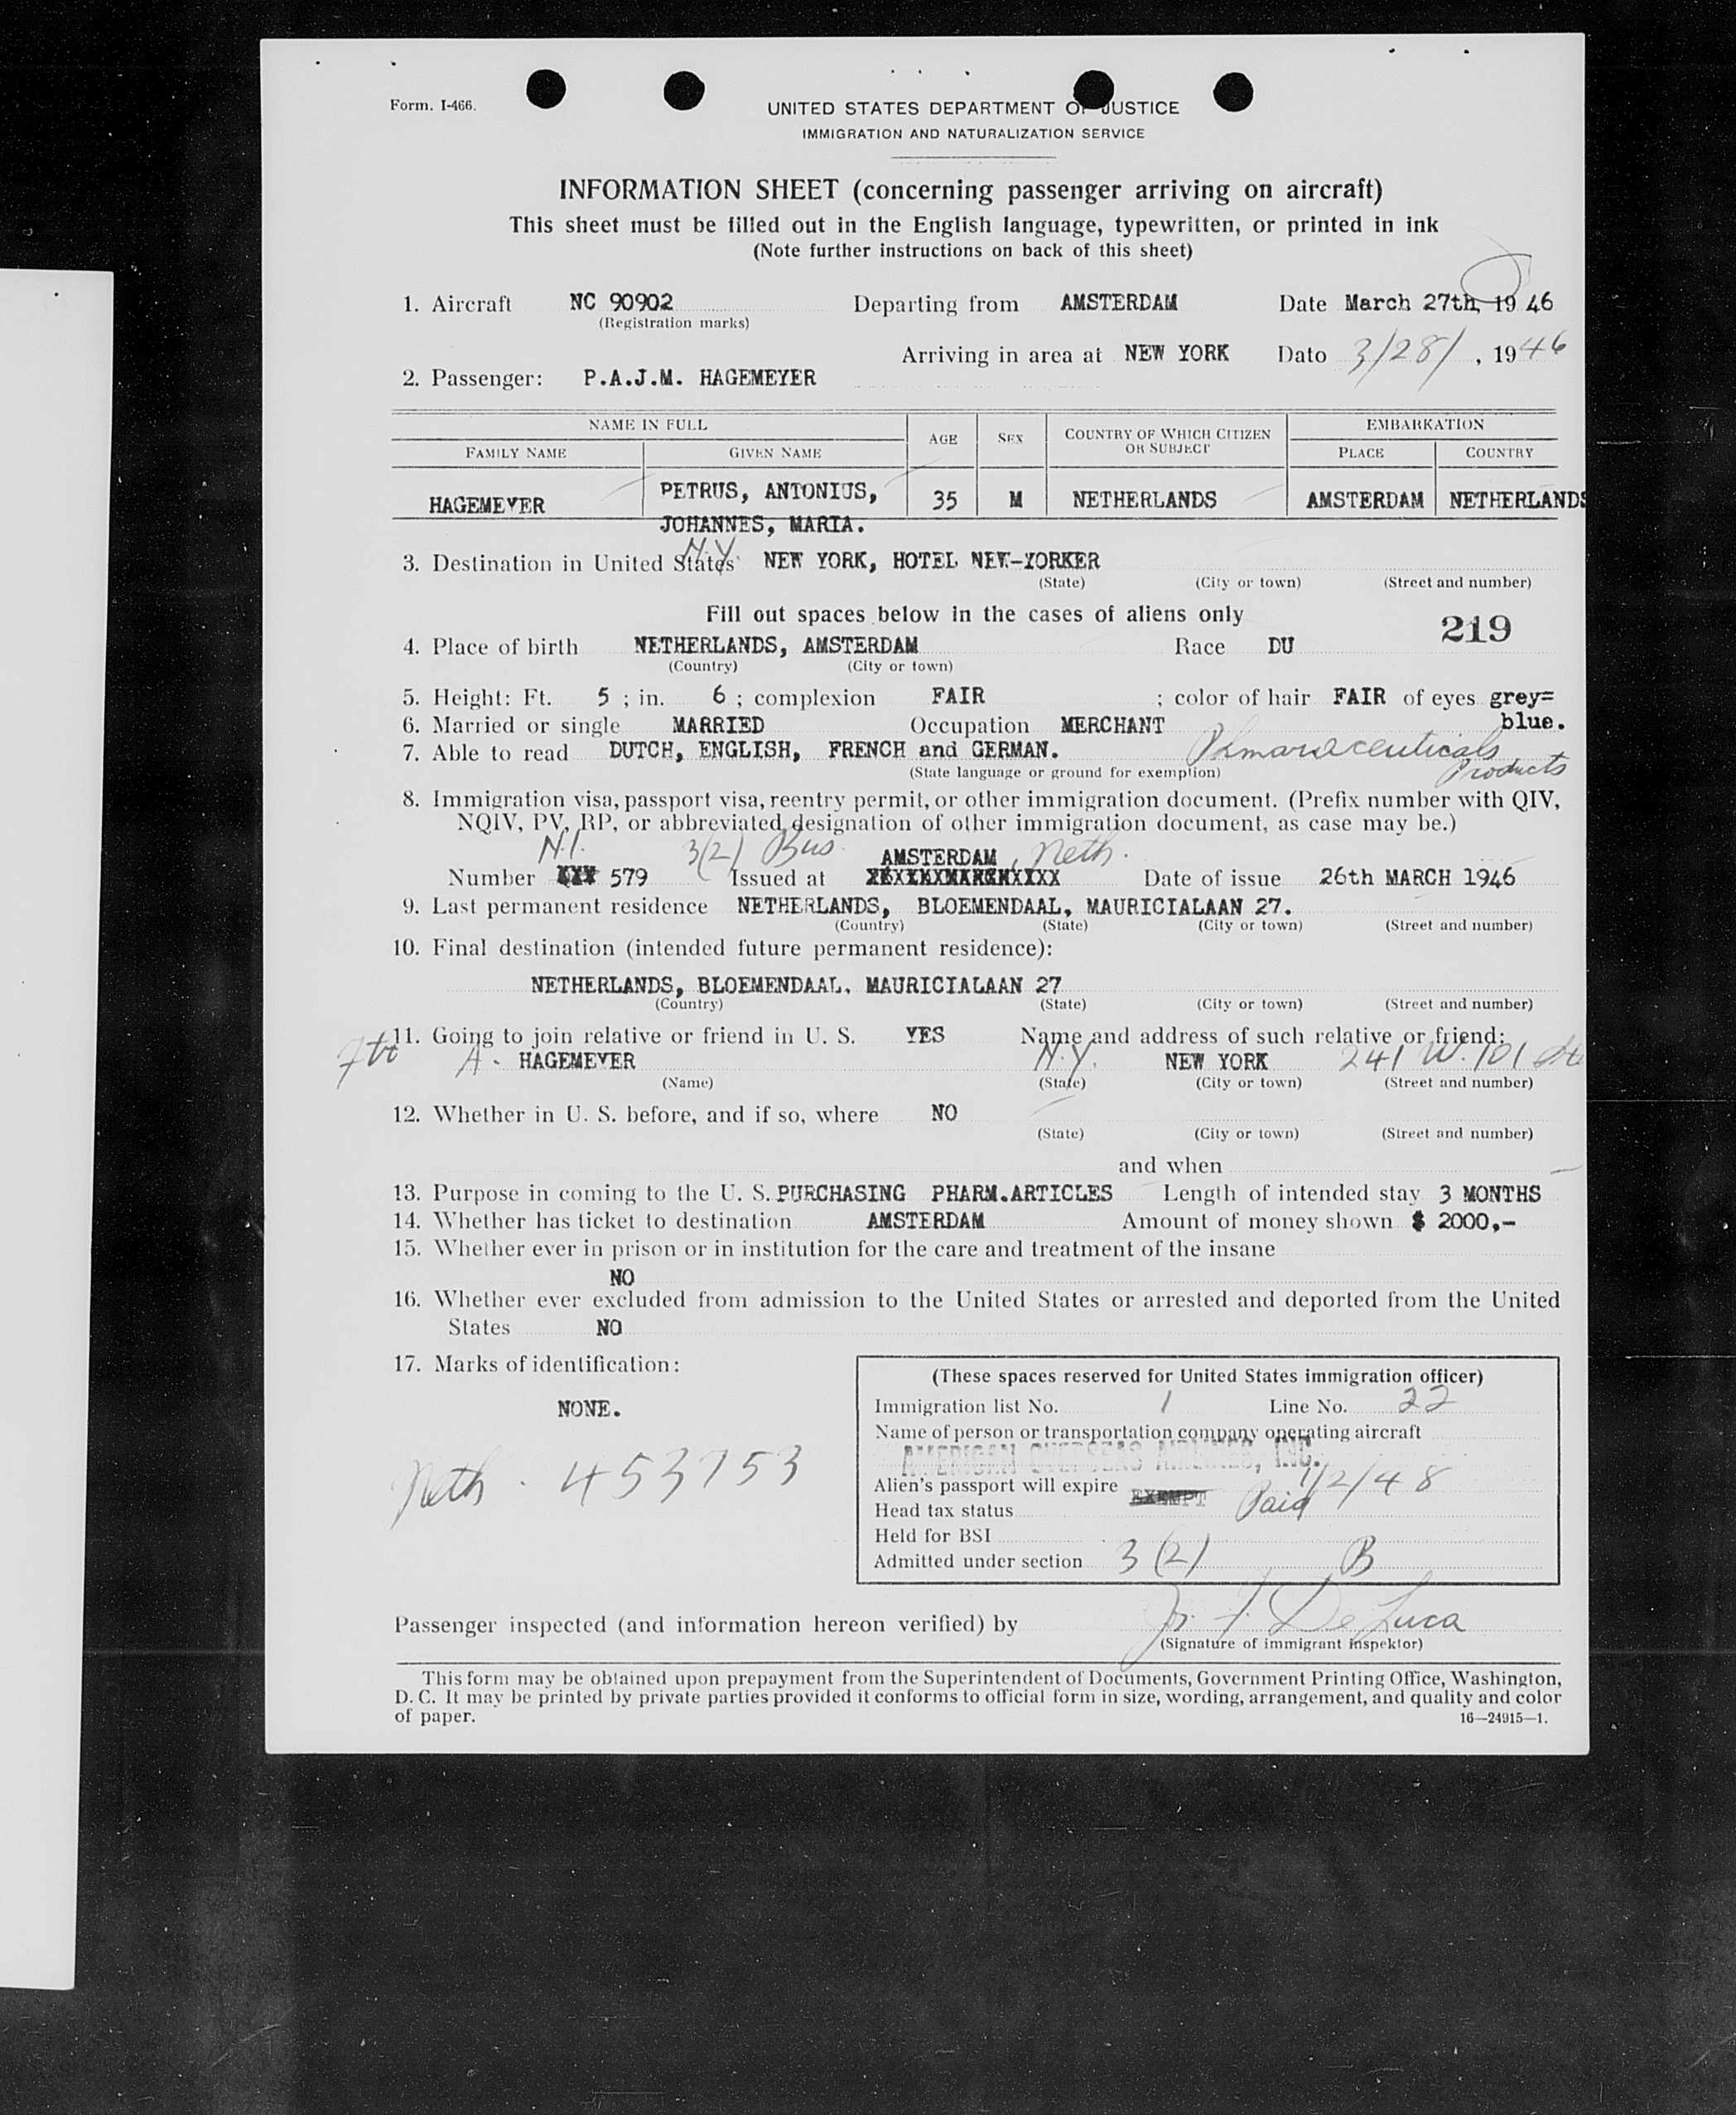 Form. I-466.
UNITED STATES DEPARTMENT OF JUSTICE
IMMIGRATION AND NATURALIZATION SERVICE
INFORMATION SHEET (concerning passenger arriving on aircraft)
This sheet must be filled out in the English language, typewritten, or printed in ink
(Note further instructions on back of this sheet)
1. Aircraft NC 90902 Departing from AMSTERDAM Date March 27th, 19 46
(Registration marks)
Arriving in area at NEW YORK Dato 3/28/ , 1946
2. Passenger: P.A.J.M. HAGEMEYER
NAME IN FULL AGE SEX COUNTRY OF WHICH CITIZEN OR SUBJECT EMBARKATION
FAMILY NAME GIVEN NAME PLACE COUNTRY
HAGEMEYER PETRUS, ANTONIUS, 35 M NETHERLANDS AMSTERDAM NETHERLANDS
JOHANNES, MARIA.
3. Destination in United States N.Y. NEW YORK, HOTEL NEW-YORKER
(State) (City or town) (Street and number)
Fill out spaces below in the cases of aliens only
219
4. Place of birth NETHERLANDS, AMSTERDAM Race DU
(Country) (City or town)
5. Height: Ft. 5 ; in. 6 ; complexion FAIR ; color of hair FAIR of eyes grey=
blue.
6. Married or single MARRIED Occupation MERCHANT
7. Able to read DUTCH, ENGLISH, FRENCH and GERMAN. Phmaraceuticals
Products
(State language or ground for exemption)
8. Immigration visa, passport visa, reentry permit, or other immigration document. (Prefix number with QIV,
NQIV, PV, RP, or abbreviated designation of other immigration document, as case may be.)
N.I. 3(2) Bus. AMSTERDAM, Neth.
Number 579 Issued at Date of issue 26th MARCH 1946
9. Last permanent residence NETHERLANDS, BLOEMENDAAL, MAURICIALAAN 27.
(Country) (State) (City or town) (Street and number)
10. Final destination (intended future permanent residence):
NETHERLANDS, BLOEMENDAAL, MAURICIALAAN 27
(Country) (State) (City or town) (Street and number)
11. Going to join relative or friend in U. S. YES Name and address of such relative or friend:
A. HAGEMEYER N.Y. NEW YORK 241 W. 101 St
(Name) (State) (City or town) (Street and number)
12. Whether in U. S. before, and if so, where NO
(State) (City or town) (Street and number)
and when
13. Purpose in coming to the U. S. PURCHASING PHARM.ARTICLES Length of intended stay 3 MONTHS
14. Whether has ticket to destination AMSTERDAM Amount of money shown $ 2000,-
15. Whether ever in prison or in institution for the care and treatment of the insane
NO
16. Whether ever excluded from admission to the United States or arrested and deported from the United
States NO
17. Marks of identification:
NONE.
Neth. 453753
(These spaces reserved for United States immigration officer)
Immigration list No. 1 Line No. 22
Name of person or transportation company operating aircraft
AMERICAN OVERSEAS AIRLINES, INC.
Alien's passport will expire 1/2/48
Head tax status EXEMPT Paid
Held for BSI
Admitted under section 3(2) B
Passenger inspected (and information hereon verified) by De Luca
(Signature of immigrant inspektor)
This form may be obtained upon prepayment from the Superintendent of Documents, Government Printing Office, Washington,
D. C. It may be printed by private parties provided it conforms to official form in size, wording, arrangement, and quality and color
of paper.
16—24915—1.